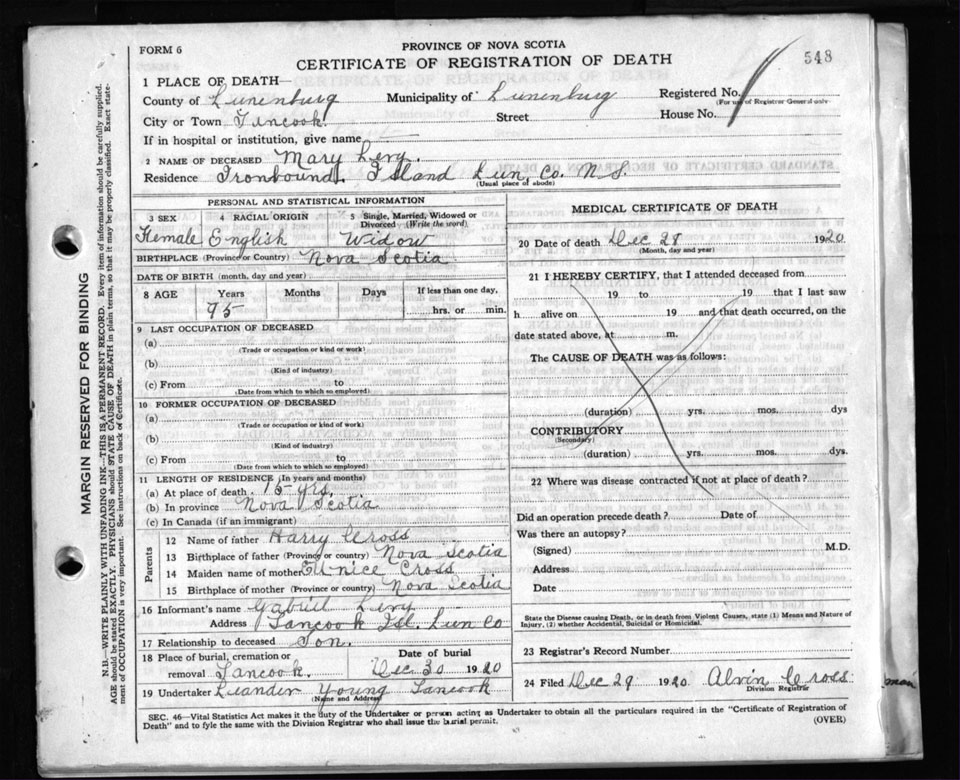 FORM 6
PROVINCE OF NOVA SCOTIA
CERTIFICATE OF REGISTRATION OF DEATH
548
1 PLACE OF DEATH—
County of Lunenburg Municipality of Lunenburg Registered No.
(For use of Registrar General only
City or Town Tancook. Street House No.
If in hospital or institution, give name
2 NAME OF DECEASED Mary Levy.
Residence Ironbound. Island Lun. Co. N S.
(Usual place of abode)
PERSONAL AND STATISTICAL INFORMATION
3 SEX 4 RACIAL ORIGIN 5 Single, Married, Widowed or Divorced (Write the word)
Female English Widow
BIRTHPLACE (Province or Country) Nova Scotia
DATE OF BIRTH (month, day and year)
8 AGE Years Months Days If less than one day,
95 hrs. or min.
9 LAST OCCUPATION OF DECEASED
(a)
(Trade or occupation or kind or work)
(b)
(Kind of industry)
(c) From to
(Date from which to which so employed)
10 FORMER OCCUPATION OF DECEASED
(a)
(Trade or occupation or kind of work
(b)
(Kind of industry)
(c) From to
(Date from which to which so employed)
11 LENGTH OF RESIDENCE (In years and months)
(a) At place of death. 75 yrs.
(b) In province Nova Scotia
(c) In Canada (if an immigrant)
Parents
12 Name of father Harry Cross
13 Birthplace of father (Province or country) Nova Scotia
14 Maiden name of mother Eunice Cross
15 Birthplace of mother (Province or country) Nova Scotia
16 Informant's name Gabriel Levy
Address Tancook Isl. Lun Co
17 Relationship to deceased Son.
18 Place of burial, cremation or Date of burial
removal Tancook. Dec 30 1920
19 Undertaker Leander Young Tancook
(Name and Address)
MEDICAL CERTIFICATE OF DEATH
20 Date of death Dec 28 1920
(Month, day and year)
21 I HEREBY CERTIFY, that I attended deceased from
19 to 19 that I last saw
h alive on 19 and that death occurred, on the
date stated above, at m.
The CAUSE OF DEATH was as follows:
(duration) yrs. mos. dys
CONTRIBUTORY
(Secondary)
(duration) yrs. mos. dys.
22 Where was disease contracted if not at place of death?
Did an operation precede death? Date of
Was there an autopsy?
(Signed) M.D.
Address
Date
State the Disease causing Death, or in death from Violent Causes, state (1) Means and Nature of
Injury, (2) whether Accidental, Suicidal or Homicidal.
23 Registrar's Record Number
24 Filed Dec 29 1920. Alvin Cross
Division Registrar
SEC. 46—Vital Statistics Act makes it the duty of the Undertaker or person acting as Undertaker to obtain all the particulars required in the "Certificate of Registration of
Death" and to fyle the same with the Division Registrar who shall issue the burial permit.
(OVER)
MARGIN RESERVED FOR BINDING
N.B.—WRITE PLAINLY WITH UNFADING INK—THIS IS A PERMANENT RECORD. Every item of information should be carefully supplied.
AGE should be stated EXACTLY. PHYSICIANS should STATE CAUSE OF DEATH in plain terms, so that it may be properly classified. Exact state-
ment of OCCUPATION is very important. See instructions on back of Certificate.